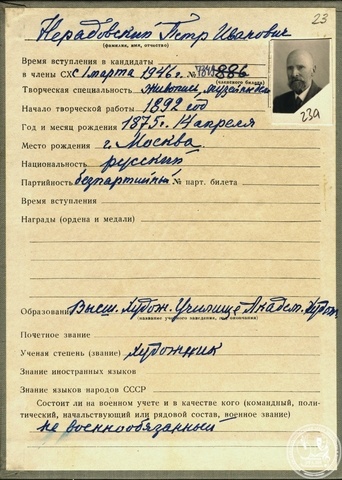 23
Нерадовский Петр Иванович
(фамилия, имя, отчество)
Время вступления в кандидаты
в члены СХ с 1 марта 1946 г. № 886
(членского билета)
Творческая специальность живопись, музейн.
Начало творческой работы 1892 год
Год и месяц рождения 1875 г. 14 апреля
Место рождения г. Москва
Национальность русский
Партийность безпартийный № парт. билета
Время вступления
Награды (ордена и медали)
23а
Образование Высш. Худож. Училище Академ. Худож
(название учебного заведения, год окончания)
Почетное звание
Ученая степень (звание) художник
Знание иностранных языков
Знание языков народов СССР
Состоит ли на военном учете и в качестве кого (командный, поли-
тический, начальствующий или рядовой состав, военное звание)
не военнообязанный